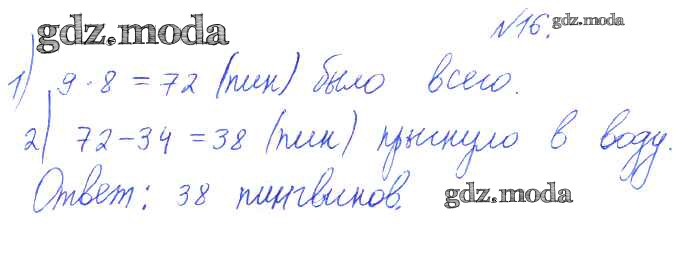 gdz.moda
№16. gdz.moda
1) 9·8=72 (пин) было всего.
2) 72-34=38 (пин) прыгнуло в воду.
Ответ: 38 пингвинов. gdz.moda